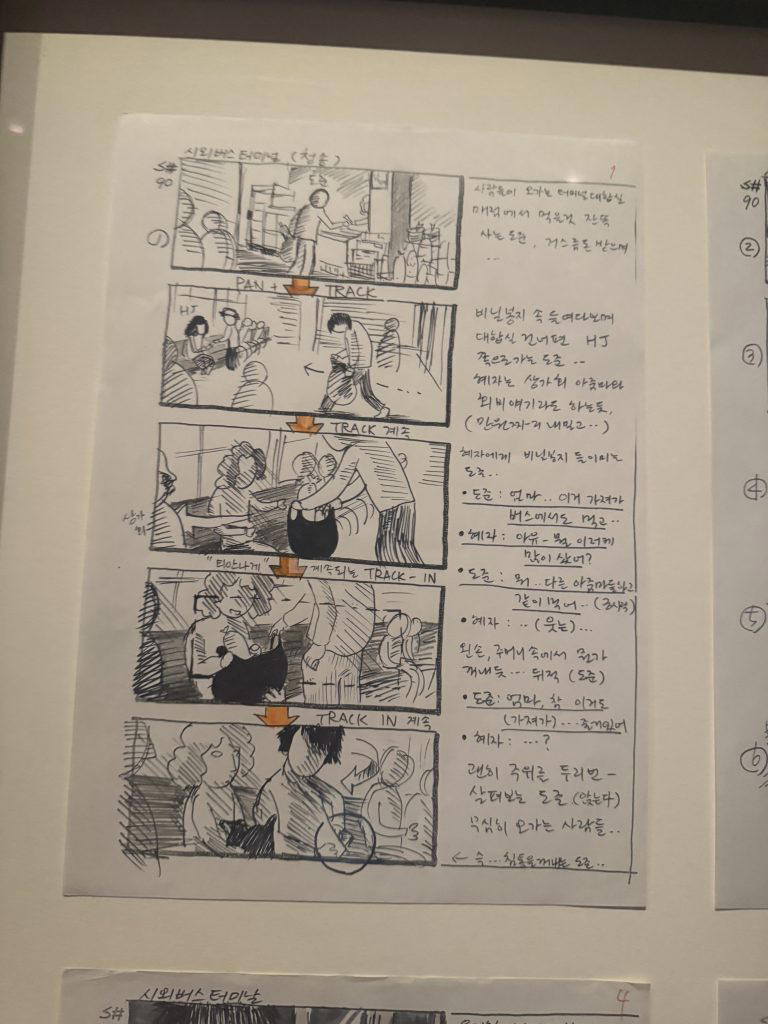 시외버스터미널 (청솔)
1
S#
90
①
도준
사람들이 오가는 터미널 대합실
매점에서 먹을것 잔뜩
사는 도준, 거스름돈 받으며
...
PAN + TRACK
HJ
비닐봉지 속 들여다보며
대합실 건너편 HJ
쪽으로 가는 도준 ..
혜자는 상가회 아줌마와
회비얘기라도 하는듯,
(만원짜리 내밀고..)
TRACK 계속
상가
회
혜자에게 비닐봉지 들이미는
도준..
• 도준 : 엄마.. 이거 가져가
버스에서도 먹고..
• 혜자 : 아유- 뭘 이렇게
많이 샀어?
"티안나게" 계속되는 TRACK-IN
• 도준 : 뭐.. 다른 아줌마들하고
같이 먹어..
• 혜자 : .. (웃는) ...
왼손, 주머니 속에서 뭔가
꺼내듯... 뒤적 (도준)
TRACK IN 계속
• 도준 : 엄마, 참 이거도
(가져가) ...
• 혜자 : ...?
괜히 주위를 두리번-
살펴보는 도준 (앉는다)
무심히 오가는 사람들..
← 슥... 침통을 꺼내는 도준..
S#
90
②
③
④
⑤
⑥
시외버스터미날
4
S#